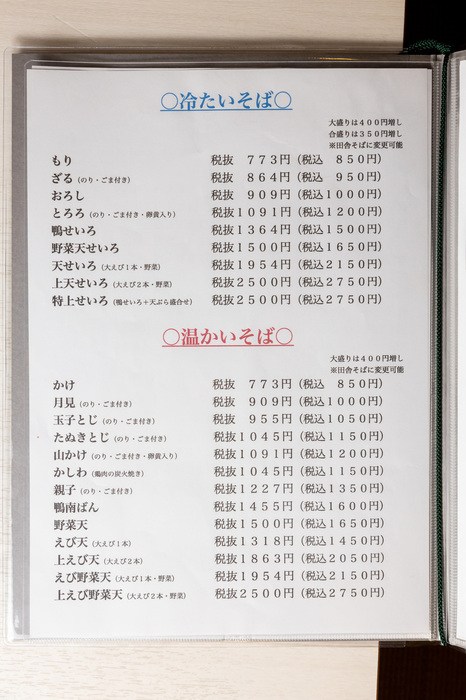 ○冷たいそば○
大盛りは４００円増し
合盛りは３５０円増し
※田舎そばに変更可能
もり 税抜 ７７３円（税込 ８５０円）
ざる（のり・ごま付き） 税抜 ８６４円（税込 ９５０円）
おろし 税抜 ９０９円（税込１０００円）
とろろ（のり・ごま付き・卵黄入り） 税抜１０９１円（税込１２００円）
鴨せいろ 税抜１３６４円（税込１５００円）
野菜天せいろ 税抜１５００円（税込１６５０円）
天せいろ（大えび１本・野菜） 税抜１９５４円（税込２１５０円）
上天せいろ（大えび２本・野菜） 税抜２５００円（税込２７５０円）
特上せいろ（鴨せいろ＋天ぷら盛合せ） 税抜２５００円（税込２７５０円）
○温かいそば○
大盛りは４００円増し
※田舎そばに変更可能
かけ 税抜 ７７３円（税込 ８５０円）
月見（のり・ごま付き） 税抜 ９０９円（税込１０００円）
玉子とじ（のり・ごま付き） 税抜 ９５５円（税込１０５０円）
たぬきとじ（のり・ごま付き） 税抜１０４５円（税込１１５０円）
山かけ（のり・ごま付き・卵黄入り） 税抜１０９１円（税込１２００円）
かしわ（鶏肉の炭火焼き） 税抜１０４５円（税込１１５０円）
親子（のり・ごま付き） 税抜１２２７円（税込１３５０円）
鴨南ばん 税抜１４５５円（税込１６００円）
野菜天 税抜１５００円（税込１６５０円）
えび天（大えび１本） 税抜１３１８円（税込１４５０円）
上えび天（大えび２本） 税抜１８６３円（税込２０５０円）
えび野菜天（大えび１本・野菜） 税抜１９５４円（税込２１５０円）
上えび野菜天（大えび２本・野菜） 税抜２５００円（税込２７５０円）